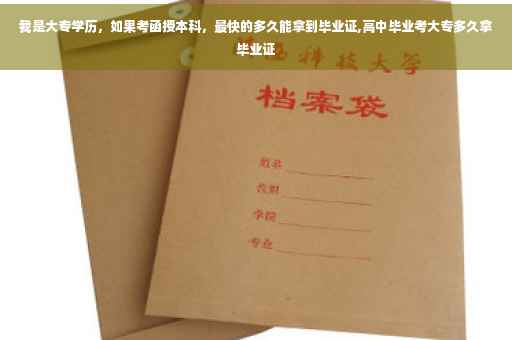 我是大专学历，如果考函授本科，最快的多久能拿到毕业证,高中毕业考大专多久拿
毕业证
科技大学
档案袋
学院
专业